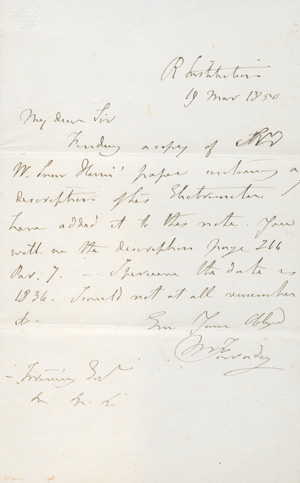 R Institution
19 Mar 1850
My dear Sir
Finding a copy of
W. Snow Harris' paper containing a
description of his Electrometer
have added it to this note. You
will see the description page 214
Par. 7. I perceive the date is
1834. I could not at all remember
it.
Ever Yours Obligd
M Faraday
Esqr